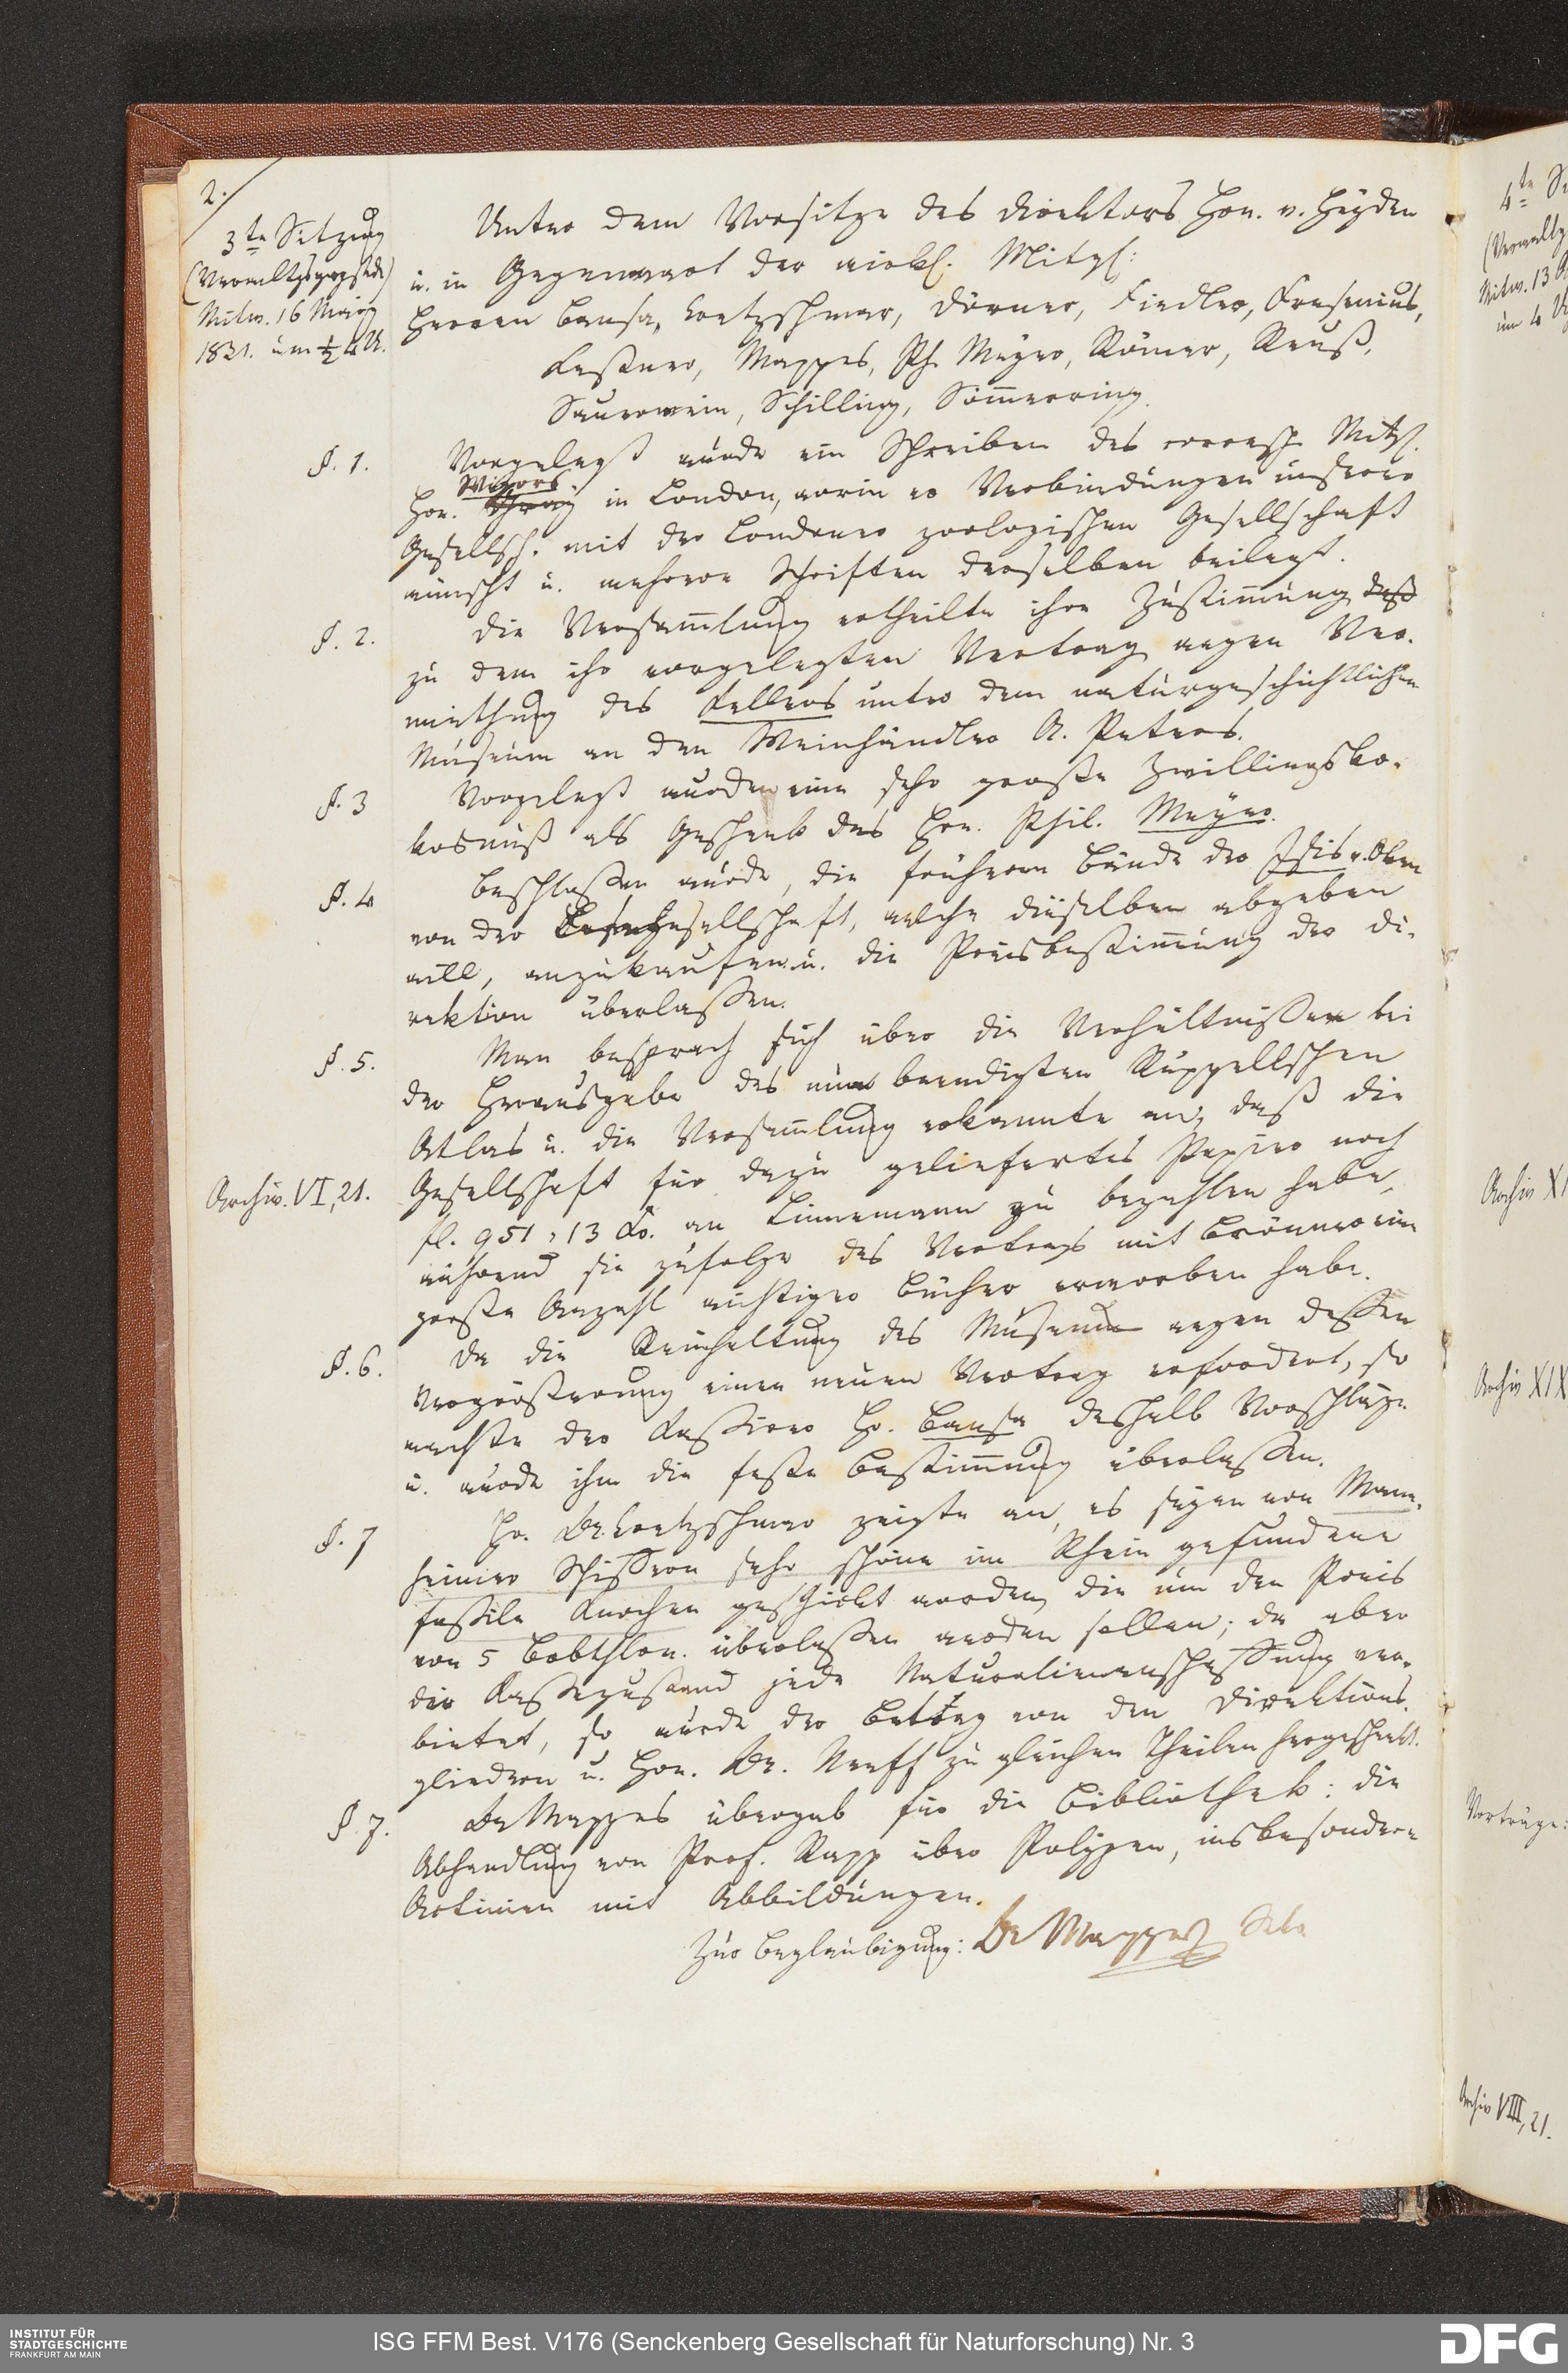 2.
3te Sitzung
(Verwaltgsgegstde)
Mittw. 16 März
1831. um ½ 4 U.
Unter dem Vorsitze des Direktors Hrn. v. Heyden
u. in Gegenwart der wirkl. Mitgl:
Herren Bansa, Cretzschmar, Dörner, Fiedler, Fresenius,
Keßner, Mappes, Ph. Meyer, Römer, Reuß,
Sauerwein, Schilling, Sömmerring.
§. 1.
Vorgelegt wurde ein Schreiben des corresp. Mitgl.
Vigors
Hrn. in London, worin er Verbindungen unserer
Gesellsch. mit der Londoner zoologischen Gesellschaft
wünscht u. mehrere Schriften derselben beilegt.
§. 2.
Die Versammlung ertheilte ihre Zustimmung daß
zu dem ihr vorgelegten Vertrag wegen Ver-
miethung des Kellers unter dem naturgeschichtlichen
Museum an den Weinhändler A. Peters.
§. 3
Vorgelegt wurden eine sehr große Zwillingsko-
kosnuß als Geschenk des Hrn. Phil. Meyer.
§. 4
Beschloßen wurde, die früheren Bände der Isis v. Oken
von der Lesegesellschaft, welche dieselben abgeben
will, anzukaufen u. die Preisbestimmung der Di-
rektion überlaßen.
§. 5.
Man besprach sich über die Verhältnißen bei
der Herausgabe des nun beendigten Rüppellschen
Atlas u. die Versammlung erkannte an, daß die
Archiv. VI, 21.
Gesellschaft für dazu geliefertes Papier noch
fl. 951, 13 Kr. an Linnemann zu bezahlen habe,
während sie zufolge des Vertrags mit Brönner eine
große Anzahl wichtiger Bücher erworben habe.
§. 6.
Da die Reinhaltung des Museums wegen deßen
Vergrößerung einen neuen Vertrag erfordert, so
machte der Kassierer Hr. Bansa deshalb Vorschläge
u. wurde ihm die feste Bestimmung überlaßen.
§. 7
Hr. Dr. Cretzschmar zeigte an, es seyen von Mann-
heimer Schiffern sehr schöne im Rhein gefundene
foßile Knochen geschickt worden, die um den Preis
von 5 Kbthlrn. überlaßen werden sollen; da aber
der Kaßezustand jede Naturalienanschaffung ver-
bietet, so wurde der Betrag von den Direktions-
gliedern u. Hrn. Dr. Neeff zu gleichen Theilen hergeschenkt.
§. 7.
Dr Mappes übergab für die Bibliothek: die
Abhandlung von Prof. Rapp über Polypen, insbesondere
Actinien mit Abbildungen.
Zur Beglaubigung: Dr Mappes Sekr.
4te
Mittw. 13
um 4
Archiv XI
Archiv XIX
Vorträge:
Archiv VIII, 21.
INSTITUT FÜR
STADTGESCHICHTE
FRANKFURT AM MAIN
ISG FFM Best. V176 (Senckenberg Gesellschaft für Naturforschung) Nr. 3
DFG